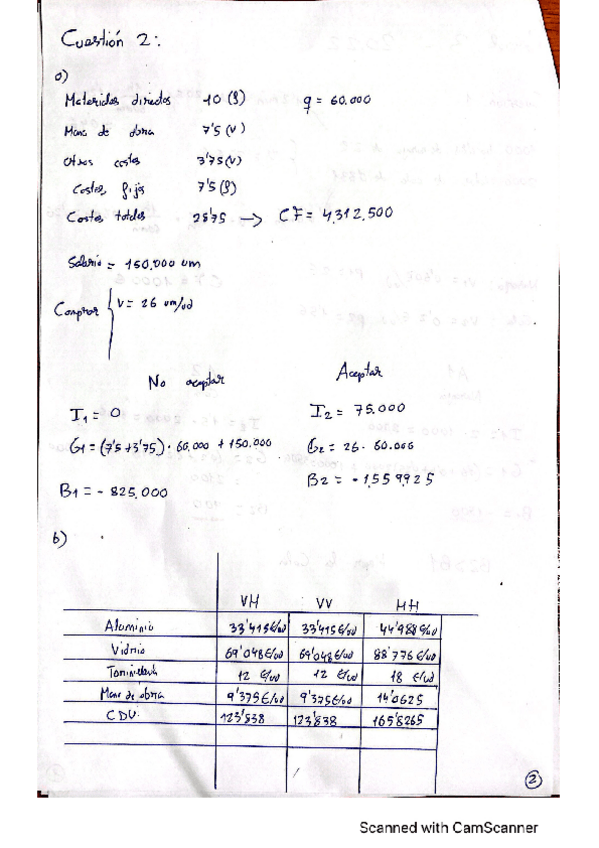 Cuestión 2:
a)
Materiales directos 10 (f) q = 60.000
Mano de obra 7'5 (v)
Otros costes 3'75 (v)
Costes fijos 7'5 (f)
Costes totales 28'75 → CF = 4,312,500
Salario = 150.000 um
Comprar { v = 26 um/ud
No aceptar Aceptar
I1 = 0 I2 = 75.000
G1 = (7'5 + 3'75) · 60.000 + 150.000 G2 = 26 · 60.000
B1 = - 825.000 B2 = - 1,559,925
b)
VH VV HH
Aluminio 33'415 €/ud 33'415 €/ud 44'988 €/ud
Vidrio 69'048 €/ud 69'048 €/ud 88'776 €/ud
12 €/ud 12 €/ud 18 €/ud
Mano de obra 9'375 €/ud 9'375 €/ud 14'0625
CDU 123'838 123'838 165'8265
2
Scanned with CamScanner